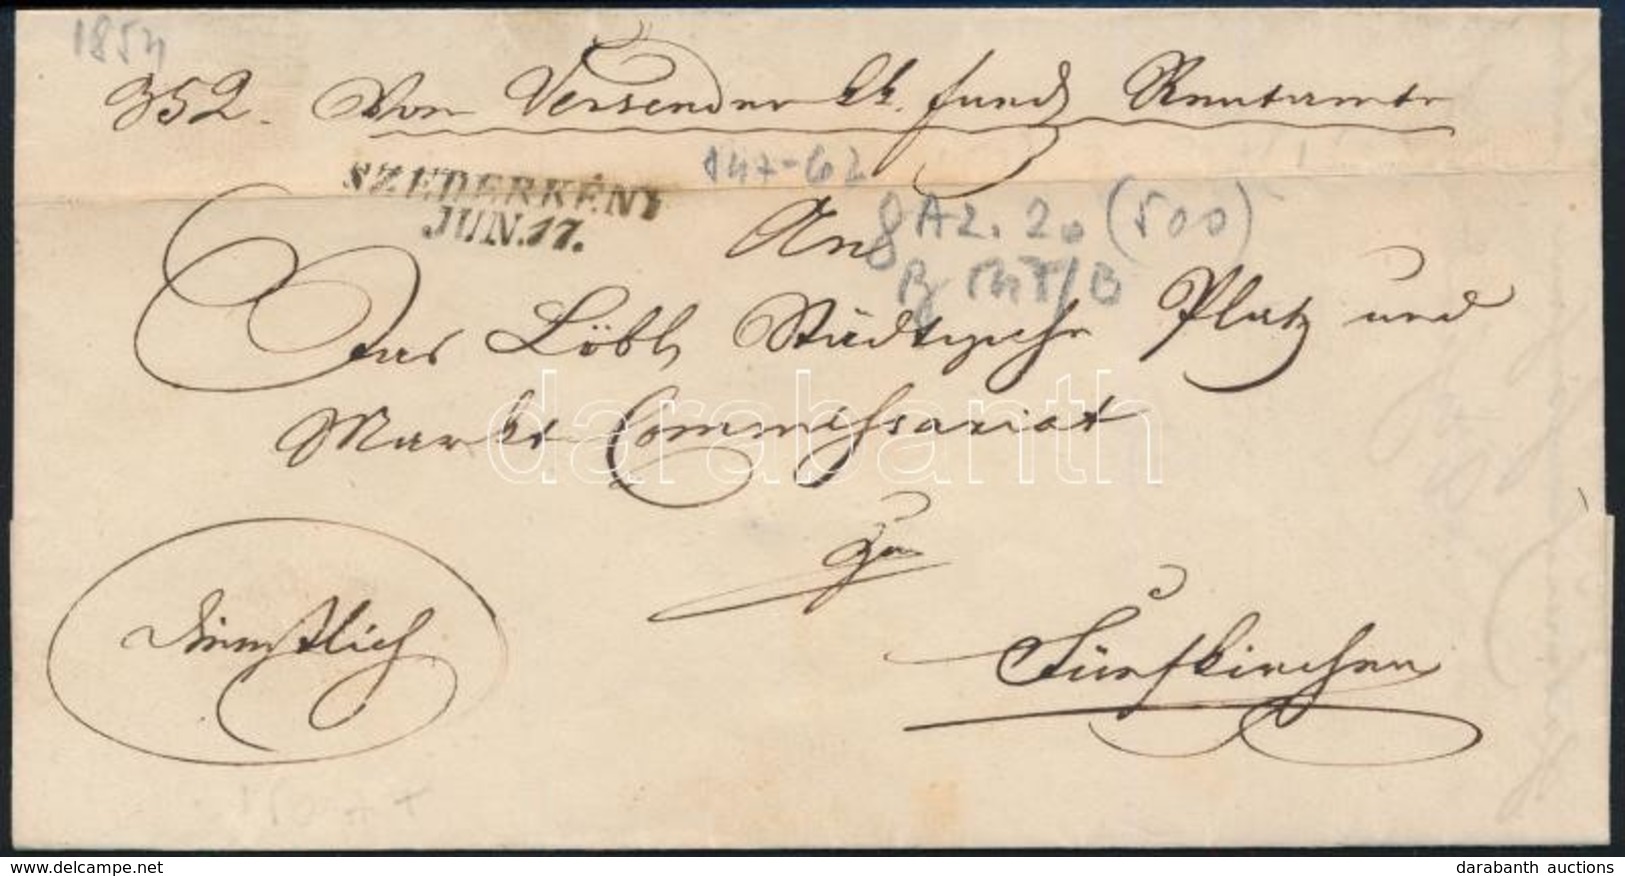 1854
352. Von Versender kk. fund Rentamte
SZEDERKÉNY
JUN.17.
147-62
An
Az. 20 (500)
Das Löbl Städtische Platz und
Markt Commissariat
zu
Dienstlich
Fünfkirchen
darabanth
www.delcampe.net
darabanth auctions